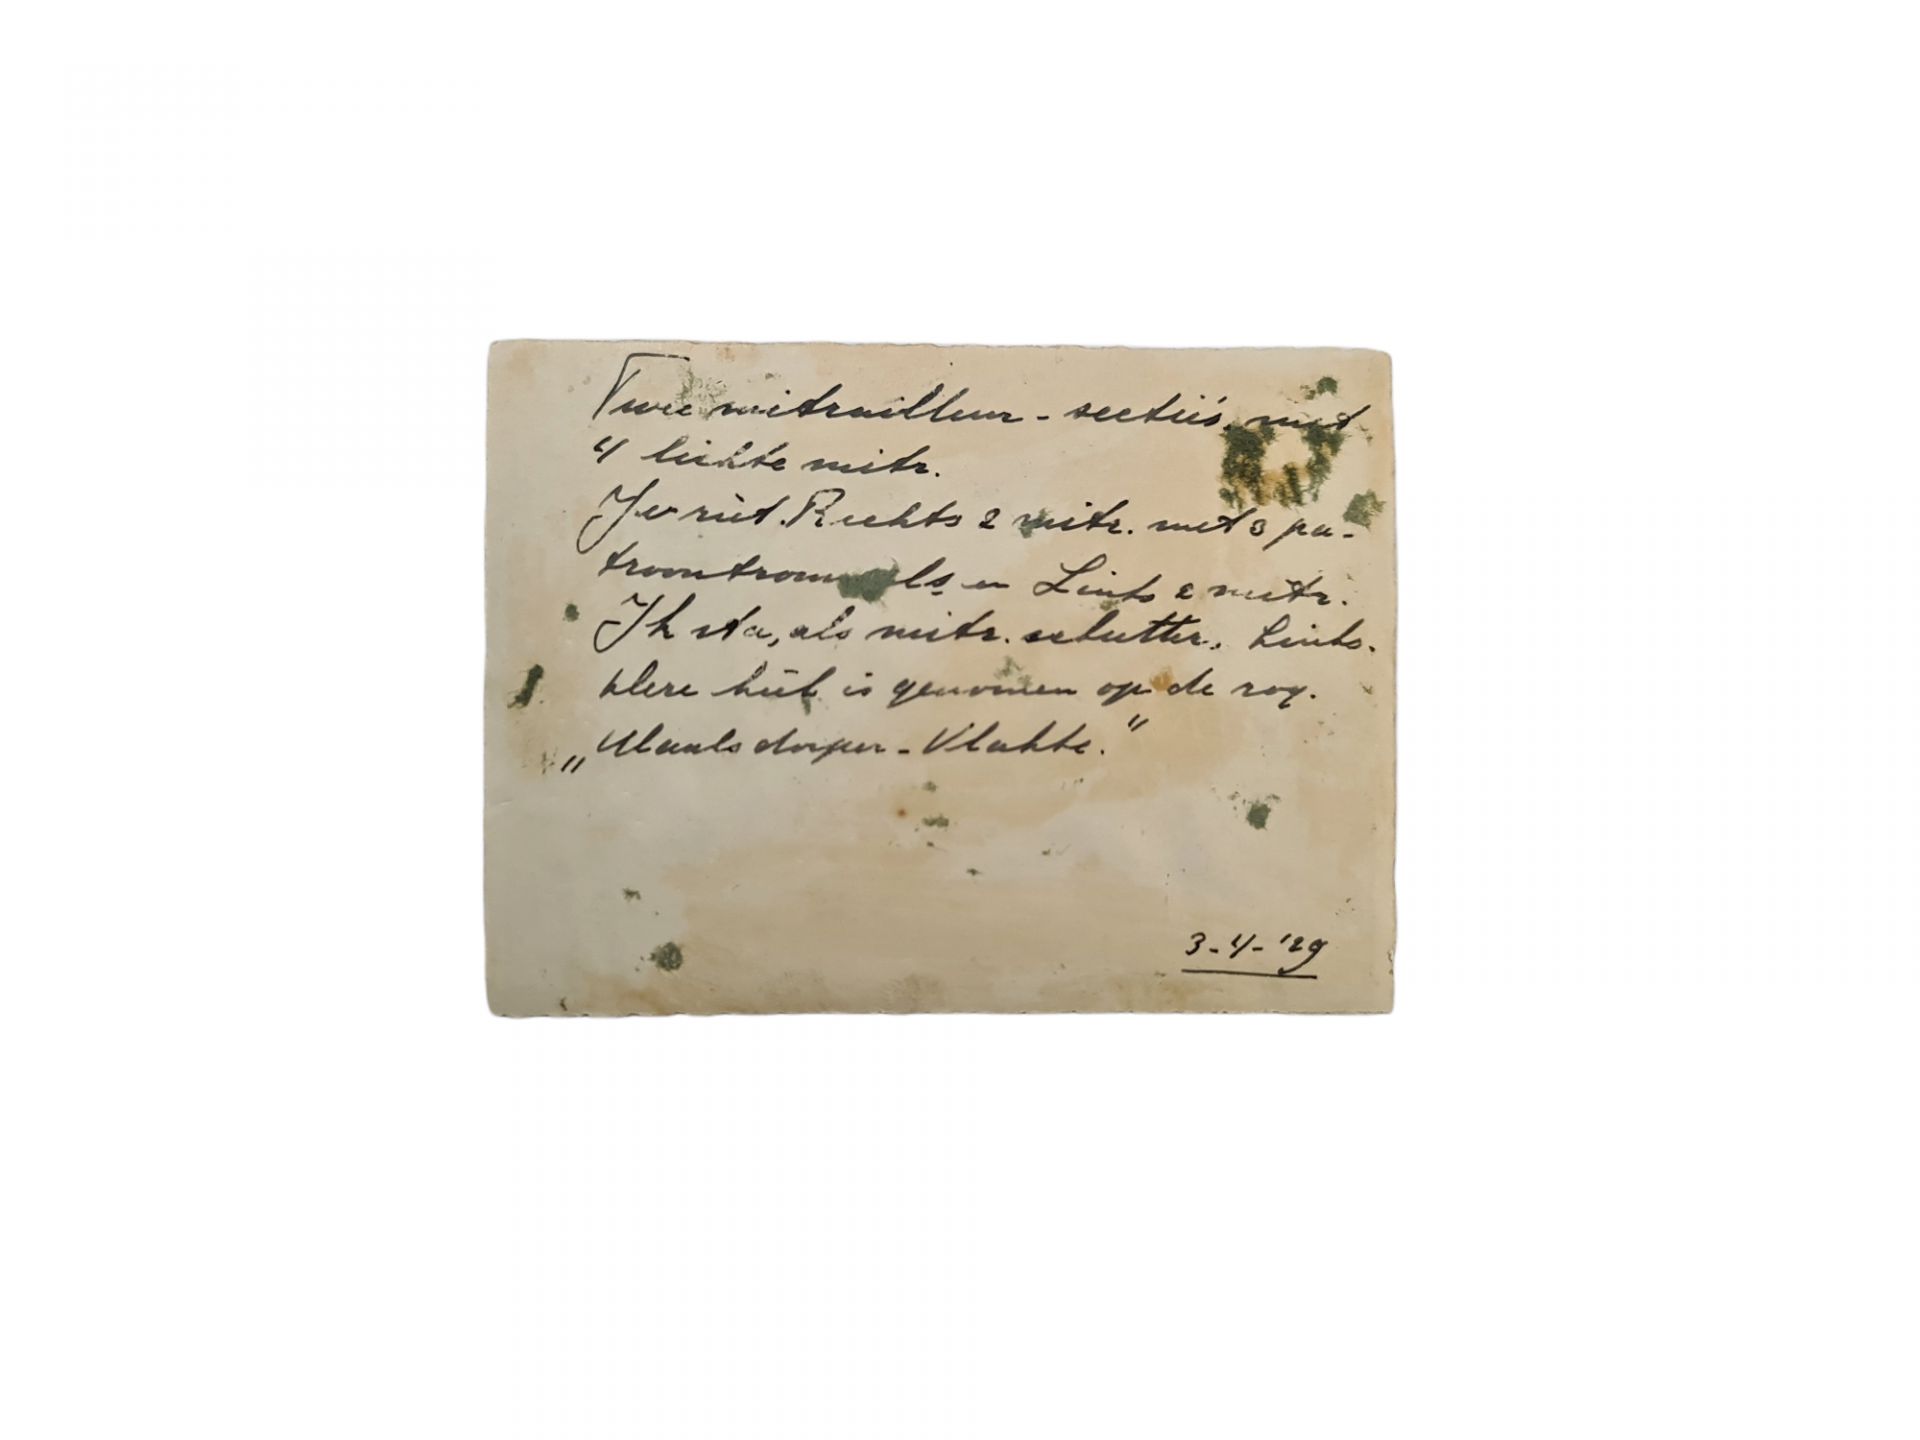 Twee mitrailleur - sectiës, met
4 lichte mitr.
Je ziet. Rechts 2 mitr. met 3 pa-
troontrommels en Links 2 mitr.
Ik sta, als mitr. schutter, Links.
kiek is genomen op de zog.
„Waalsdorper - Vlakte."
3-4-'29